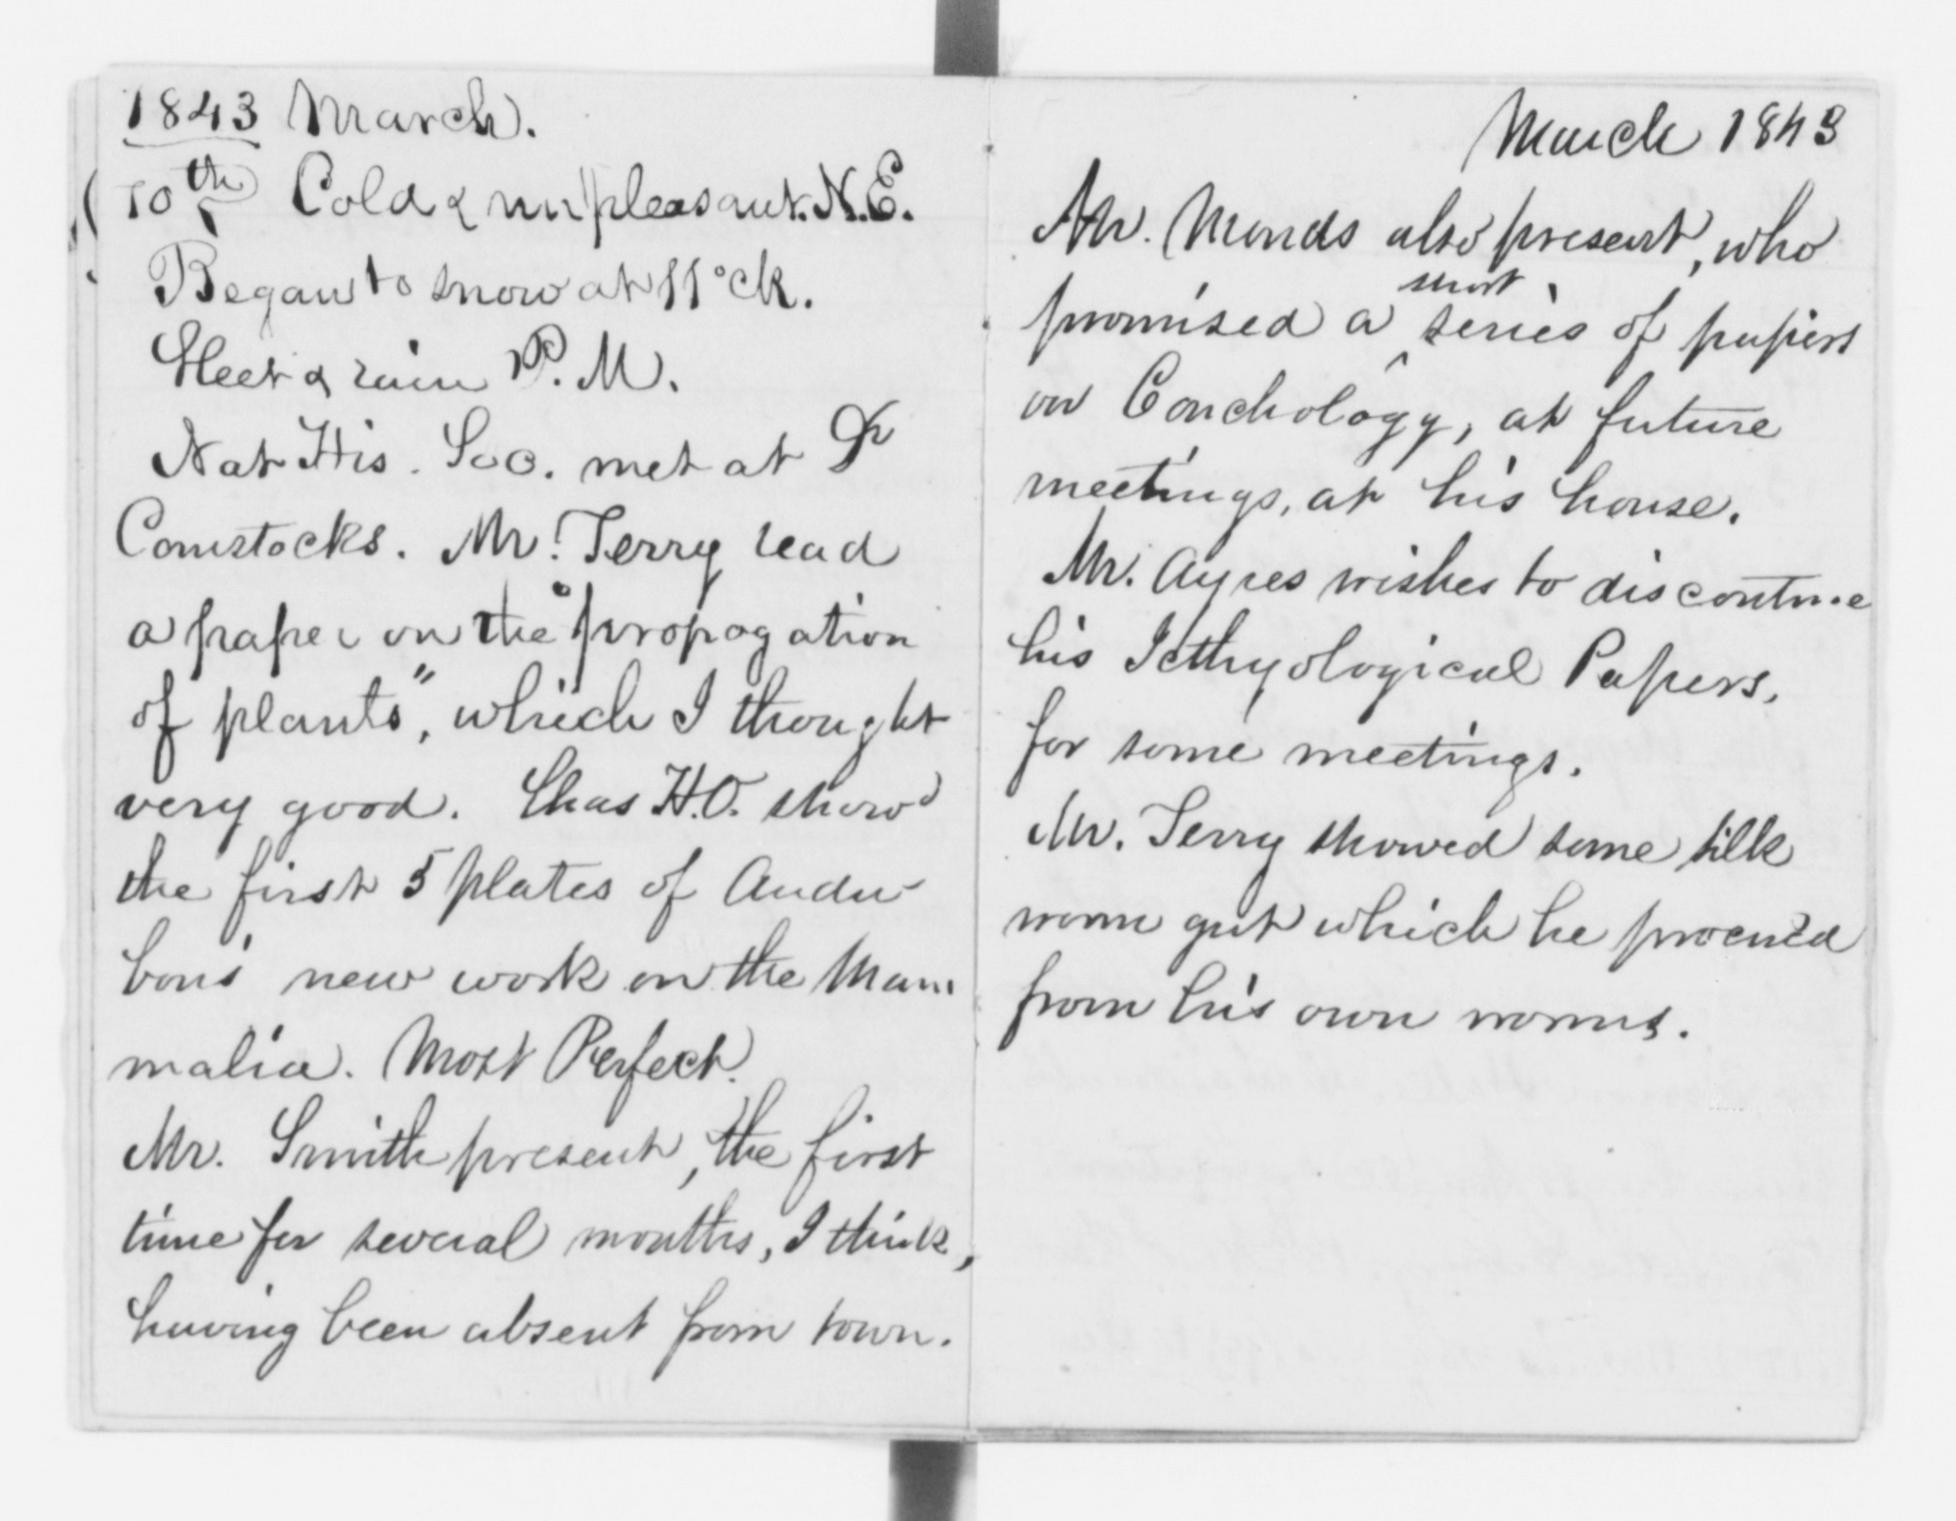 1843 March.
10th Cold & unpleasant. N.E.
Began to snow at 11 °ck.
Sleet & rain P.M.
Nat His. Soc. met at Dr
Comstocks. Mr. Terry read
a paper on the "propagation
of plants", which I thought
very good. Chas H.O. showd
the first 5 plates of Audu-
bon's new work on the Mam
malia. Most Perfect.
Mr. Smith present, the first
time for several months, I think,
having been absent from town.
March 1843
Mr. Monds also present, who
promised a short series of papers
on Conchology, at future
meetings, at his house.
Mr. Ayres wishes to discontnue
his Icthyological Papers,
for some meetings.
Mr. Terry showed some silk
worm gut which he procured
from his own worms.